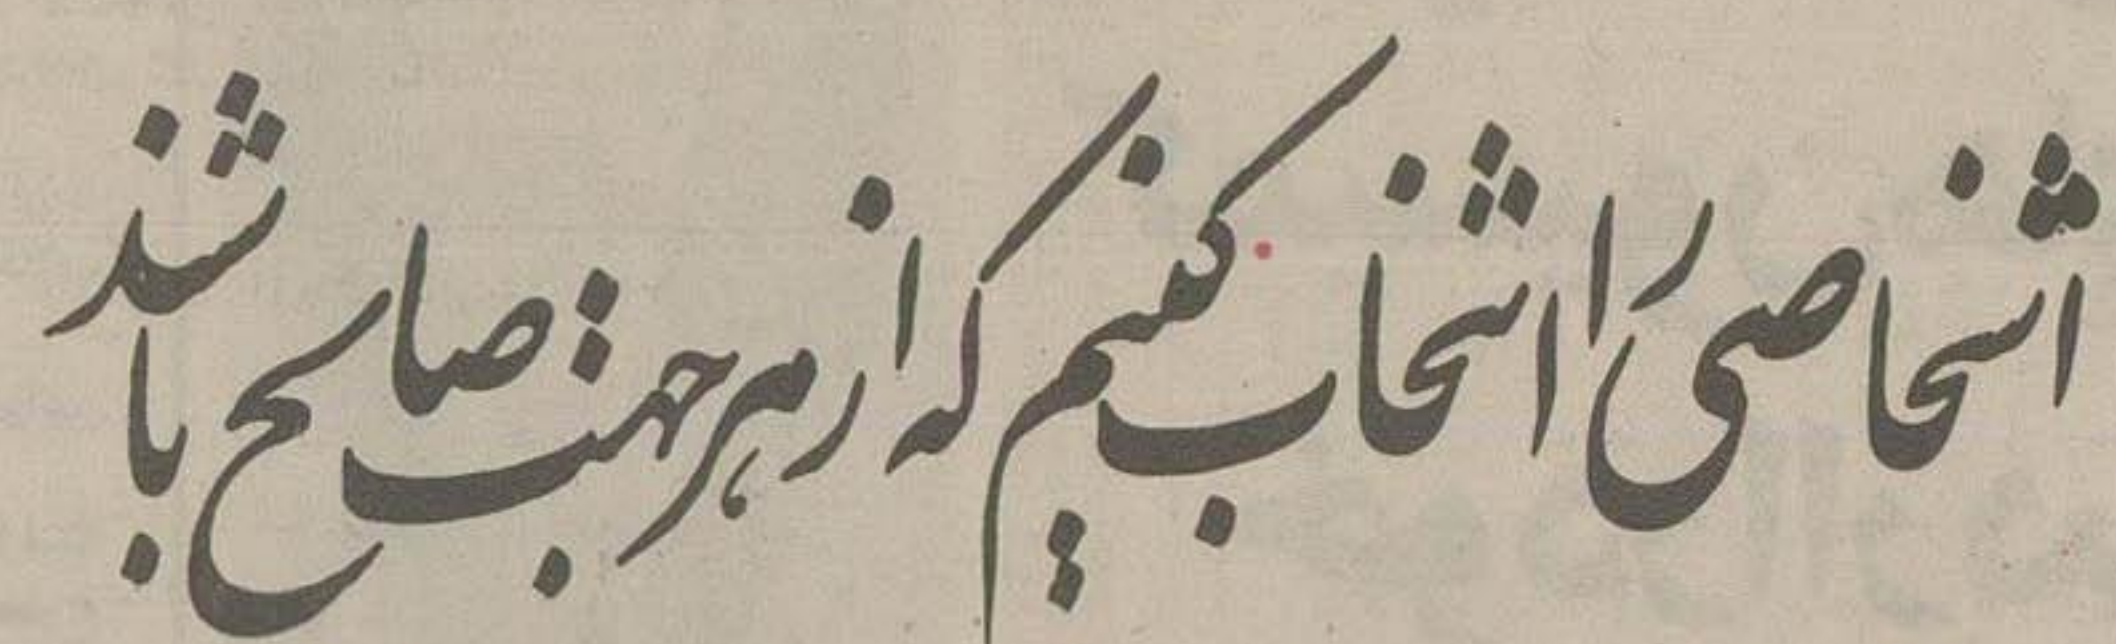 اشخاصی را انتخاب کنیم که از هر جهت صالح باشند